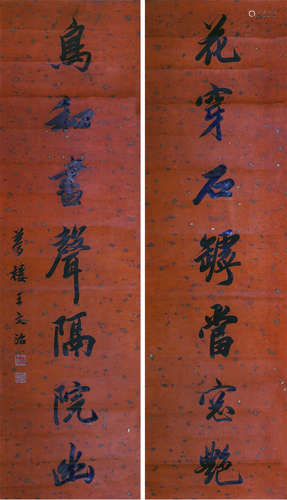 花穿石罅當窓艷
鳥和書聲隔院幽
夢樓王文治